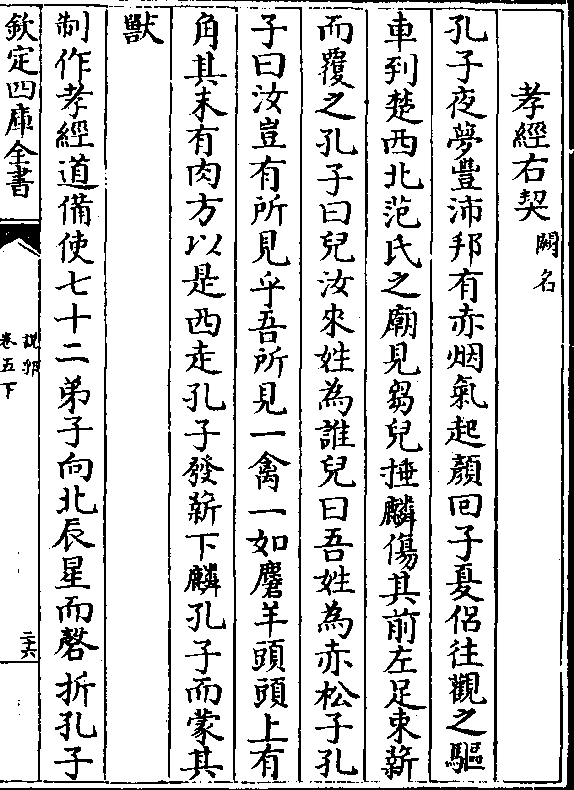 孝經右契闕名
孔子夜夢豐沛邦有赤烟氣起顏回子夏侶往觀之驅
車到楚西北范氏之廟見芻兒捶麟傷其前左足束薪
而覆之孔子曰兒汝來姓為誰兒曰吾姓為赤松子孔
子曰汝豈有所見乎吾所見一禽一如麕羊頭頭上有
角其末有肉方以是西走孔子發薪下麟孔子而蒙其
獸
制作孝經道備使七十二弟子向北辰星而磬折孔子
欽定四庫全書
說郛
卷五下
二十六